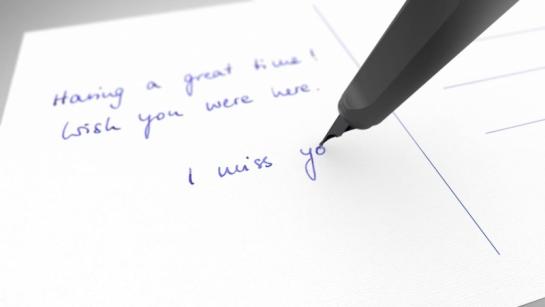 Having a great time!
Wish you were here.
I miss yo